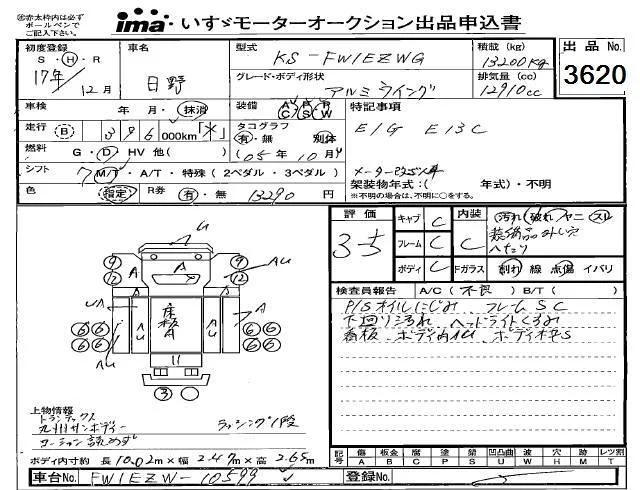 ㊟赤太枠内は必ず
ボールペンで
ご記入下さい。
ima いすゞモーターオークション出品申込書
初度登録
S・H・R
17年
12月
車名
日野
型式
KS-FW1EZWG
グレード・ボディ形状
アルミウイング
積載 (kg)
13200kg
排気量 (cc)
12910cc
出品 No.
3620
車検
年 月・抹消
装備
A P P
C S W
特記事項
E/G E13C
走行
B
396
000km
タコグラフ
有・無 別体
(05年10月)
燃料
G・D・HV 他( )
シフト
7 M/T・A/T・特殊 (2ペダル・3ペダル)
架装物年式:( 年式)・不明
※不明の場合は、不明に○をする。
色
指定
R券
有・無
13290 円
評価
3-5
キャブ C
フレーム C
ボディ C
内装 C
Fガラス
汚れ 破れ ヤニ スレ
割れ 線 点傷 イバリ
検査員報告
A/C (不良) B/T ( )
P/Sオイルにじみ、フレームSC
下回りシミれ、ヘッドライトくすみ
U
A
AU
9
9
12
12
A
A
UA
AU
床板
A
AU
A
6 6
6 6
6 6
6 6
3
上物情報
トランテックス
九州サンボディー
コーション読めず
ラッシング1段
ボディ内寸約 長 10.02m×幅 2.47m×高 2.65m
記号
傷 板金 腐 塗 錆 凹凸曲 波 穴 目 レツ割
A B C P S U W H M T
車台No.
FW1EZW-10599
登録No.